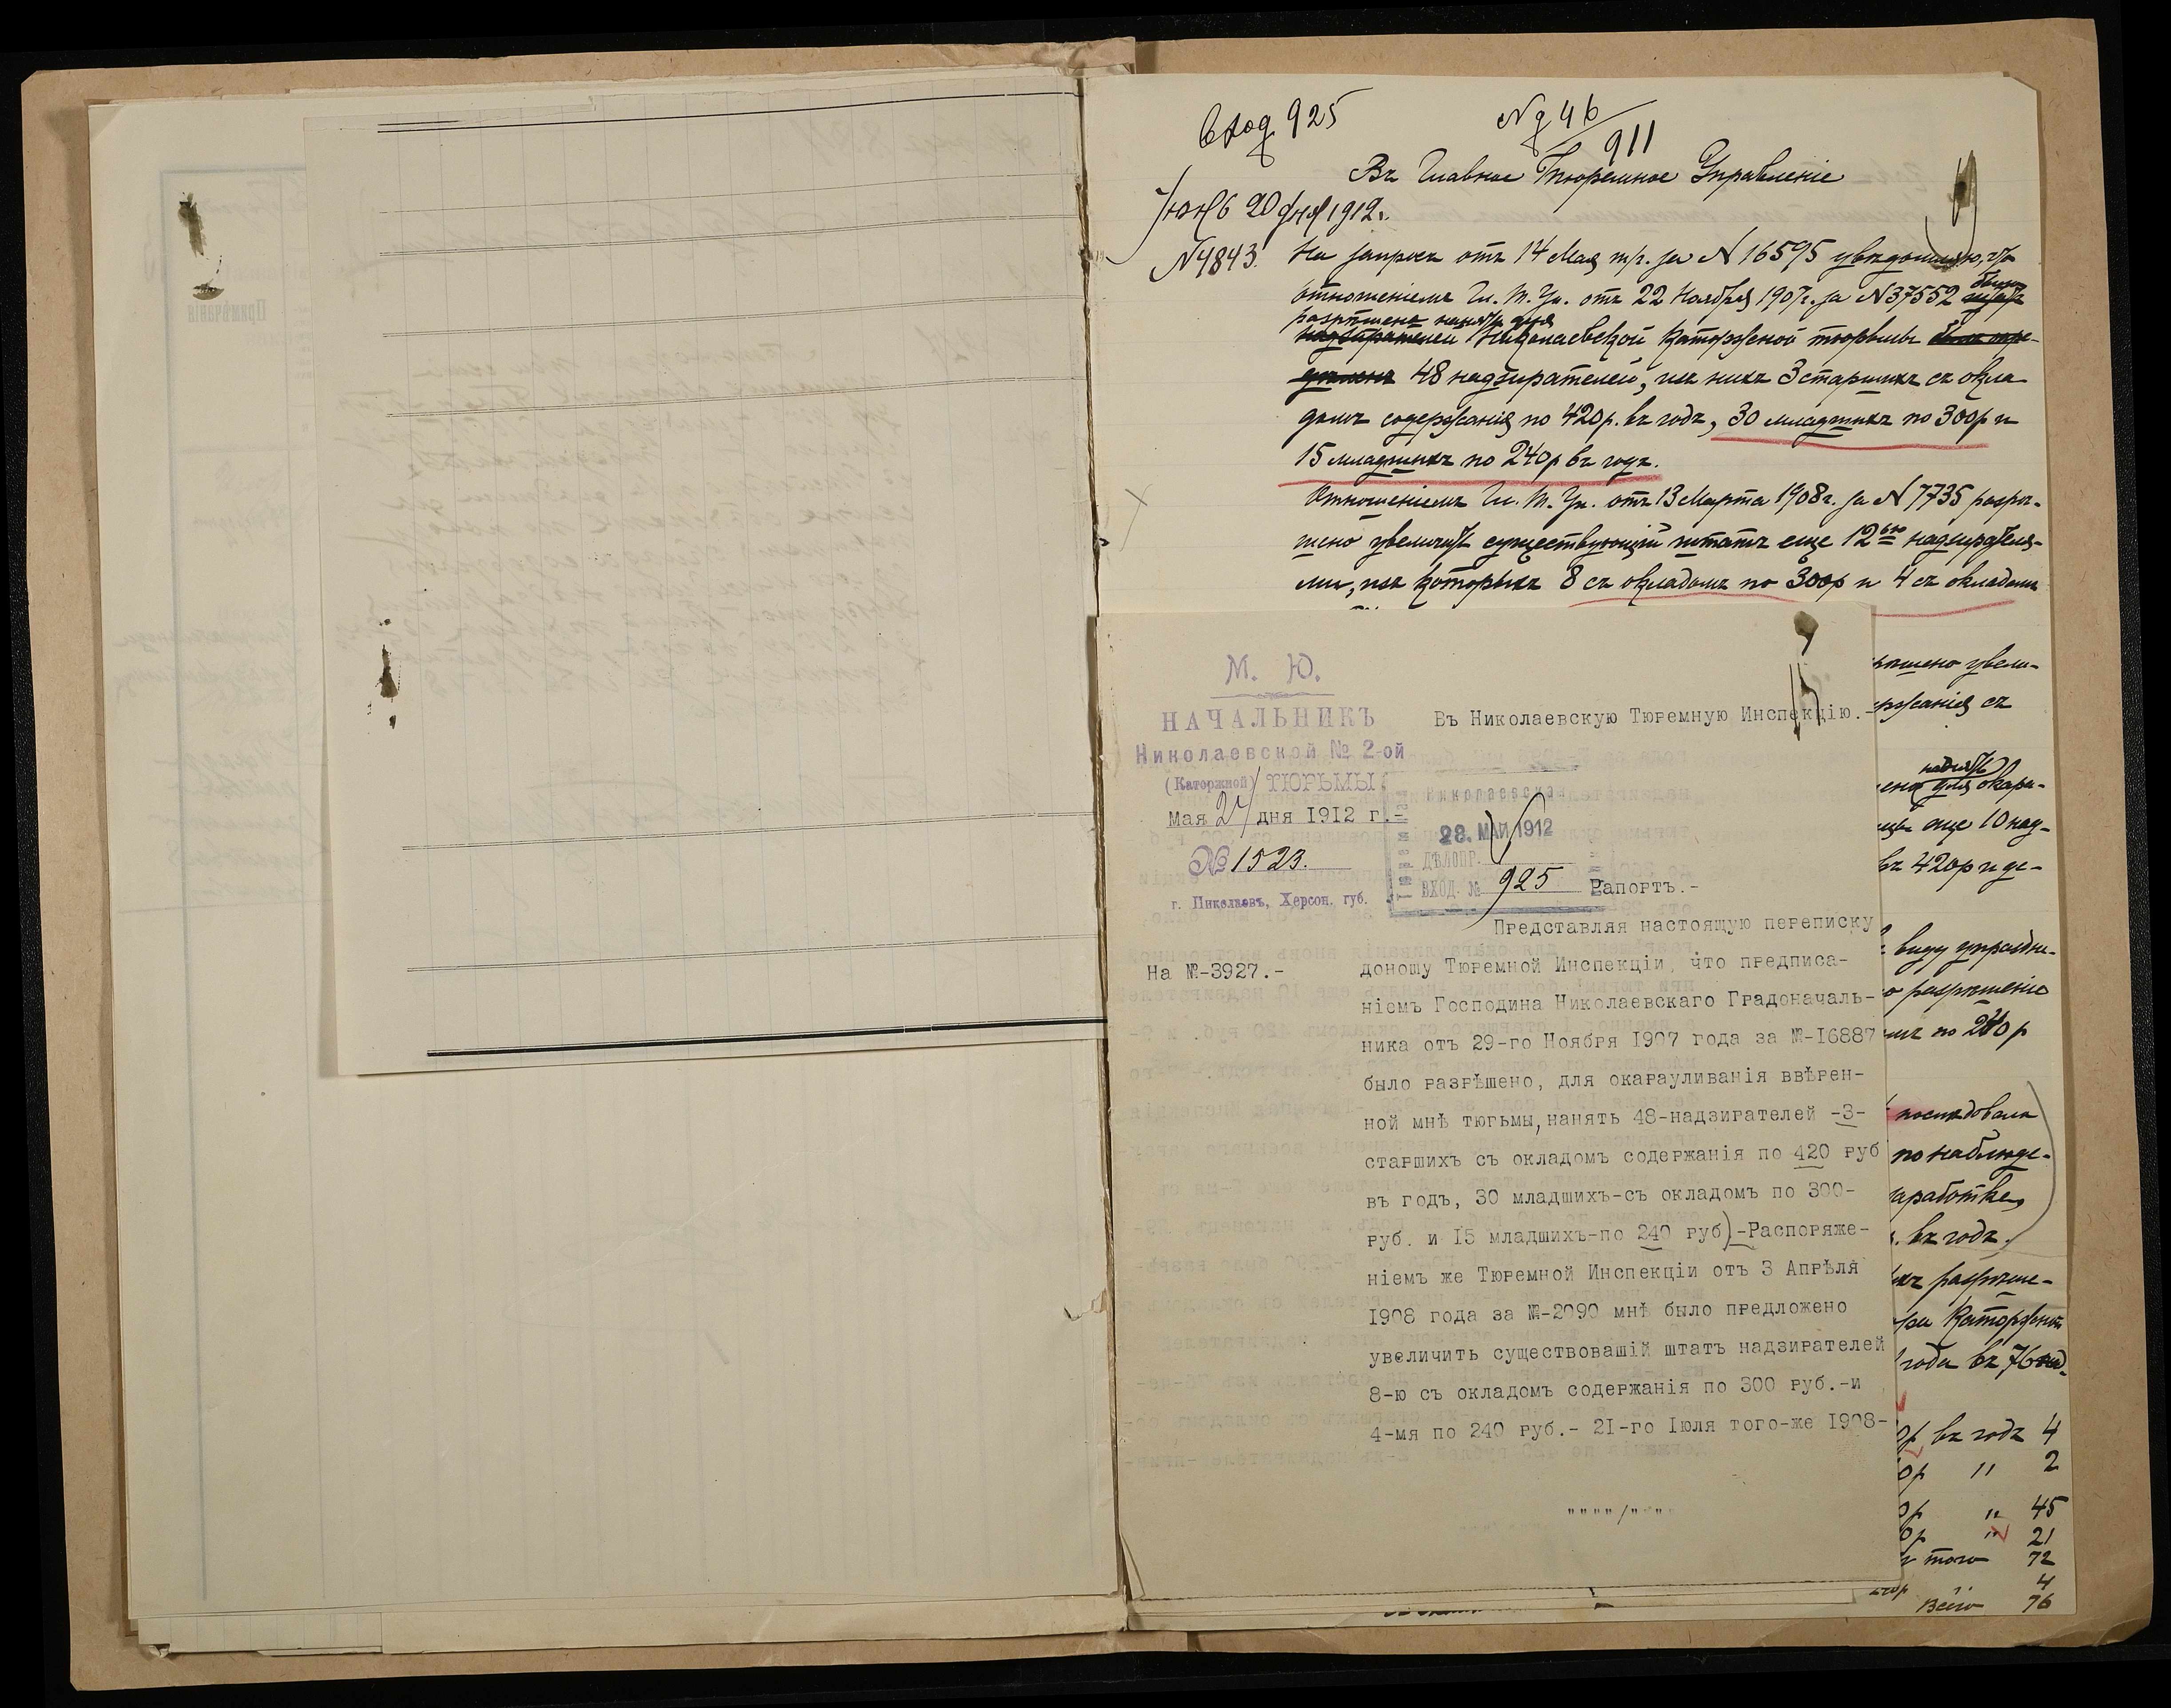 Вход 925
№ 46/911
Въ Главное Тюремное Управленіе
Іюня 20 дня 1912 г.
№ 4843.
На запросъ отъ 14 Мая т/г. за № 16595 увѣдомляю, что
отношеніемъ Гл. Т. Уп. отъ 22 Ноября 1907 г. за № 37552 было
разрѣшено нанять для
надзирателей Николаевской каторжной тюрьмы
48 надзирателей, изъ нихъ 3 старшихъ съ окла-
домъ содержанія по 420 р. въ годъ, 30 младшихъ по 300 р и
15 младшихъ по 240 р въ годъ.
Отношеніемъ Гл. Т. Уп. отъ 13 Марта 1908 г. за № 7735 разрѣ-
шено увеличить существующій штатъ еще 12ью надзирателя-
ми, изъ которыхъ 8 съ окладомъ по 300 р и 4 съ окладомъ
рѣшено увели-
ржанія съ
нанять
ено для окара-
еще 10 над-
въ 420 р и де-
виду упраздне-
о разрѣшеніе
по 240 р
послѣдовало
по наблюде-
заработкѣ,
въ годъ.
разрѣше-
Каторжной
года въ 76 над.
0р въ годъ 4
0р " 2
0р " 45
0р " 21
того 72
4
Всего 76
М. Ю.
НАЧАЛЬНИКЪ
Николаевской № 2-ой
(Каторжной) ТЮРЬМЫ
Мая 27 дня 1912 г.-
№ 1523.
г. Николаевъ, Херсон. губ.
Въ Николаевскую Тюремную Инспекцію.-
Николаевская
28. МАЙ 1912
ДѢЛОПР.
ВХОД. № 925
Рапортъ.-
На №-3927.-
Представляя настоящую переписку
доношу Тюремной Инспекціи, что предписа-
ніемъ Господина Николаевскаго Градоначаль-
ника отъ 29-го Ноября 1907 года за №-16887
было разрѣшено, для окарауливанія ввѣрен-
ной мнѣ тюрьмы, нанять 48-надзирателей -3-
старшихъ съ окладомъ содержанія по 420 руб
въ годъ, 30 младшихъ-съ окладомъ по 300-
руб. и 15 младшихъ-по 240 руб)-Распоряже-
ніемъ же Тюремной Инспекціи отъ 3 Апрѣля
1908 года за №-2090 мнѣ было предложено
увеличить существовашій штатъ надзирателей
8-ю съ окладомъ содержанія по 300 руб.-и
4-мя по 240 руб.- 21-го Іюля того-же 1908-
""""/""""